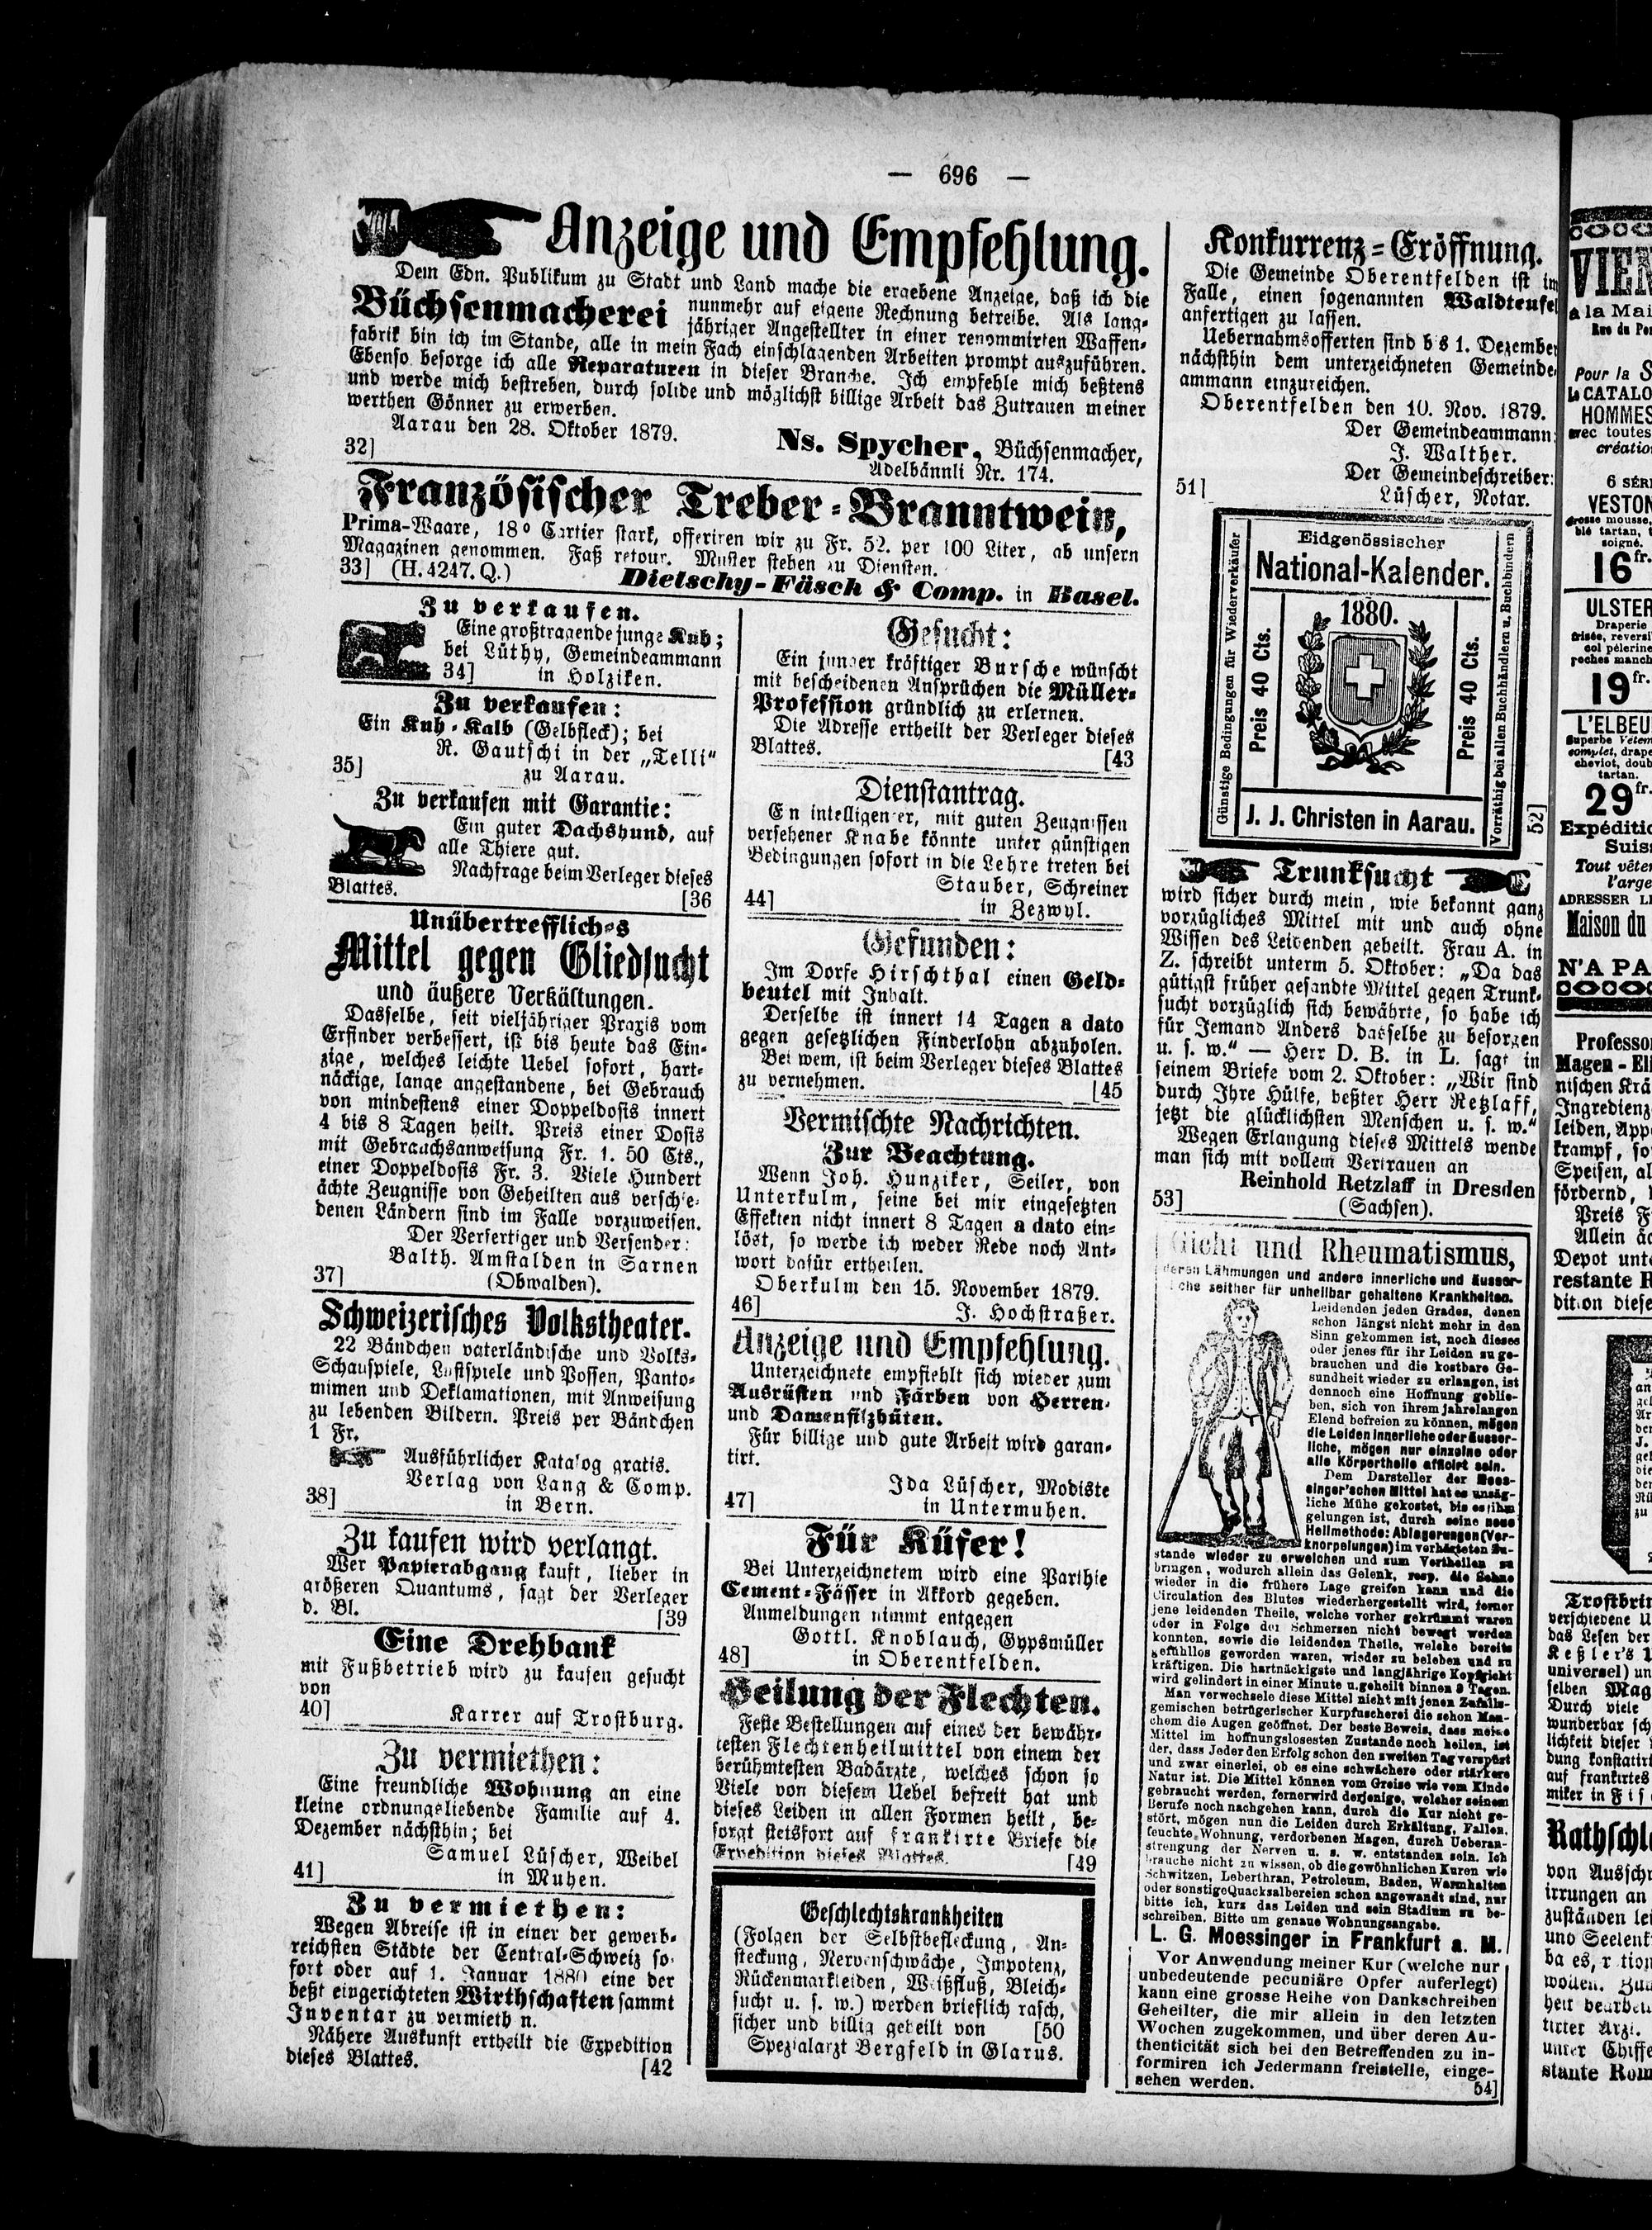 — 696 —
Anzeige und Empfehlung.
Dem Edn. Publikum zu Stadt und Land mache die ergebene Anzeige, daß ich die
Büchsenmacherei nunmehr auf eigene Rechnung betreibe. Als lang-
jähriger Angestellter in einer renommirten Waffen-
fabrik bin ich im Stande, alle in mein Fach einschlagenden Arbeiten prompt auszuführen.
Ebenso besorge ich alle Reparaturen in dieser Branche. Ich empfehle mich beßtens
und werde mich bestreben, durch solide und möglichst billige Arbeit das Zutrauen meiner
werthen Gönner zu erwerben.
Aarau den 28. Oktober 1879.
Ns. Spycher, Büchsenmacher,
32] Adelbännli Nr. 174.
Französischer Treber-Branntwein,
Prima-Waare, 18° Cartier stark, offeriren wir zu Fr. 52. per 100 Liter, ab unsern
Magazinen genommen. Faß retour. Muster stehen zu Diensten.
33] (H. 4247. Q.) Dietschy-Fäsch & Comp. in Basel.
Zu verkaufen.
Eine großtragende junge Kuh;
bei Lüthy, Gemeindeammann
34] in Holziken.
Zu verkaufen:
Ein Kuh-Kalb (Gelbfleck); bei
R. Gautschi in der „Telli“
35] zu Aarau.
Zu verkaufen mit Garantie:
Ein guter Dachshund, auf
alle Thiere gut.
Nachfrage beim Verleger dieses
Blattes. [36
Unübertreffliches
Mittel gegen Gliedsucht
und äußere Verkältungen.
Dasselbe, seit vieljähriger Praxis vom
Erfinder verbessert, ist bis heute das Ein-
zige, welches leichte Uebel sofort, hart-
näckige, lange angestandene, bei Gebrauch
von mindestens einer Doppeldosis innert
4 bis 8 Tagen heilt. Preis einer Dosis
mit Gebrauchsanweisung Fr. 1. 50 Cts.,
einer Doppeldosis Fr. 3. Viele Hundert
ächte Zeugnisse von Geheilten aus verschie-
denen Ländern sind im Falle vorzuweisen.
Der Verfertiger und Versender:
Balth. Amstalden in Sarnen
37] (Obwalden).
Schweizerisches Volkstheater.
22 Bändchen vaterländische und Volks-
Schauspiele, Lustspiele und Possen, Panto-
mimen und Deklamationen, mit Anweisung
zu lebenden Bildern. Preis per Bändchen
1 Fr.
Ausführlicher Katalog gratis.
Verlag von Lang & Comp.
38] in Bern.
Zu kaufen wird verlangt.
Wer Papierabgang kauft, lieber in
größeren Quantums, sagt der Verleger
d. Bl. [39
Eine Drehbank
mit Fußbetrieb wird zu kaufen gesucht
von
40] Karrer auf Trostburg.
Zu vermiethen:
Eine freundliche Wohnung an eine
kleine ordnungsliebende Familie auf 4.
Dezember nächsthin; bei
Samuel Lüscher, Weibel
41] in Muhen.
Zu vermiethen:
Wegen Abreise ist in einer der gewerb-
reichsten Städte der Central-Schweiz so-
fort oder auf 1. Januar 1880 eine der
beßt eingerichteten Wirthschaften sammt
Inventar zu vermieth n.
Nähere Auskunft ertheilt die Expedition
dieses Blattes. [42
Gesucht:
Ein junger kräftiger Bursche wünscht
mit bescheidenen Ansprüchen die Müller-
Profession gründlich zu erlernen.
Die Adresse ertheilt der Verleger dieses
Blattes. [43
Dienstantrag.
E n intelligenter, mit guten Zeugnissen
versehener Knabe könnte unter günstigen
Bedingungen sofort in die Lehre treten bei
Stauber, Schreiner
44] in Zezwyl.
Gefunden:
Im Dorfe Hirschthal einen Geld-
beutel mit Inhalt.
Derselbe ist innert 14 Tagen a dato
gegen gesetzlichen Finderlohn abzuholen.
Bei wem, ist beim Verleger dieses Blattes
zu vernehmen. [45
Vermischte Nachrichten.
Zur Beachtung.
Wenn Joh. Hunziker, Seiler, von
Unterkulm, seine bei mir eingesetzten
Effekten nicht innert 8 Tagen a dato ein-
löst, so werde ich weder Rede noch Ant-
wort dafür ertheilen.
Oberkulm den 15. November 1879.
46] J. Hochstraßer.
Anzeige und Empfehlung.
Unterzeichnete empfiehlt sich wieder zum
Ausrüsten und Färben von Herren-
und Damenfilzhüten.
Für billige und gute Arbeit wird garan-
tirt.
Ida Lüscher, Modiste
47] in Untermuhen.
Für Küfer!
Bei Unterzeichnetem wird eine Parthie
Cement-Fässer in Akkord gegeben.
Anmeldungen nimmt entgegen
Gottl. Knoblauch, Gypsmüller
48] in Oberentfelden.
Heilung der Flechten.
Feste Bestellungen auf eines der bewähr-
testen Flechtenheilmittel von einem der
berühmtesten Badärzte, welches schon so
Viele von diesem Uebel befreit hat und
dieses Leiden in allen Formen heilt, be-
sorgt stetsfort auf frankirte Briefe die
Expedition dieses Blattes. [49
Geschlechtskrankheiten
(Folgen der Selbstbefleckung, An-
steckung, Nervenschwäche, Impotenz,
Rückenmarkleiden, Weißfluß, Bleich-
sucht u. s. w.) werden brieflich rasch,
sicher und billig geheilt von [50
Spezialarzt Bergfeld in Glarus.
Konkurrenz-Eröffnung.
Die Gemeinde Oberentfelden ist im
Falle, einen sogenannten Waldteufel
anfertigen zu lassen.
Uebernahmsofferten sind b s 1. Dezember
nächsthin dem unterzeichneten Gemeinde-
ammann einzureichen.
Oberentfelden den 10. Nov. 1879.
Der Gemeindeammann:
J. Walther.
Der Gemeindeschreiber:
51] Lüscher, Notar.
Günstige Bedingungen für Wiederverkäufer
Eidgenössischer
National-Kalender.
1880.
Preis 40 Cts.
Preis 40 Cts.
J. J. Christen in Aarau.
Vorräthig bei allen Buchhändlern u. Buchbindern
52]
Trunksucht
wird sicher durch mein, wie bekannt ganz
vorzügliches Mittel mit und auch ohne
Wissen des Leidenden geheilt. Frau A. in
Z. schreibt unterm 5. Oktober: „Da das
gütigst früher gesandte Mittel gegen Trunk-
sucht vorzüglich sich bewährte, so habe ich
für Jemand Anders dasselbe zu besorgen
u. s. w.“ — Herr D. B. in L. sagt in
seinem Briefe vom 2. Oktober: „Wir sind
durch Ihre Hülfe, beßter Herr Retzlaff,
jetzt die glücklichsten Menschen u. s. w.“
Wegen Erlangung dieses Mittels wende
man sich mit vollem Vertrauen an
Reinhold Retzlaff in Dresden
53] (Sachsen).
Gicht und Rheumatismus,
deren Lähmungen und andere innerliche und äusser-
che seither für unheilbar gehaltene Krankheiten.
Leidenden jeden Grades, denen
schon längst nicht mehr in den
Sinn gekommen ist, noch dieses
oder jenes für ihr Leiden zu ge-
brauchen und die kostbare Ge-
sundheit wieder zu erlangen, ist
dennoch eine Hoffnung geblie-
ben, sich von ihrem jahrelangen
Elend befreien zu können, mögen
die Leiden innerliche oder äusser-
liche, mögen nur einzelne oder
alle Körpertheile afficirt sein.
Dem Darsteller der Moes-
singer'schen Mittel hat es unsäg-
liche Mühe gekostet, bis es ihm
gelungen ist, durch seine neue
Heilmethode: Ablagerungen (Ver-
knorpelungen) im verhärteten Zu-
stande wieder zu erweichen und zum Vertheilen zu
bringen, wodurch allein das Gelenk, resp. die Sehne
wieder in die frühere Lage greifen kann und die
Circulation des Blutes wiederhergestellt wird, ferner
jene leidenden Theile, welche vorher gekrümmt waren
oder in Folge der Schmerzen nicht bewegt werden
konnten, sowie die leidenden Theile, welche bereits
gefühllos geworden waren, wieder zu beleben und zu
kräftigen. Die hartnäckigste und langjährige Kopfgicht
wird gelindert in einer Minute u. geheilt binnen 8 Tagen.
Man verwechsele diese Mittel nicht mit jenen Zufalls-
gemischen betrügerischer Kurpfuscherei die schon Man-
chem die Augen geöffnet. Der beste Beweis, dass meine
Mittel im hoffnungslosesten Zustande noch heilen, ist
der, dass Jeder den Erfolg schon den zweiten Tag verspürt
und zwar einerlei, ob es eine schwächere oder stärkere
Natur ist. Die Mittel können vom Greise wie vom Kinde
gebraucht werden, ferner wird derjenige, welcher seinem
Berufe noch nachgehen kann, durch die Kur nicht ge-
stört, mögen nun die Leiden durch Erkältung, Fallen,
feuchte Wohnung, verdorbenen Magen, durch Ueberan-
strengung der Nerven u. s. w. entstanden sein. Ich
brauche nicht zu wissen, ob die gewöhnlichen Kuren wie
Schwitzen, Leberthran, Petroleum, Baden, Warmhalten
oder sonstige Quacksalbereien schon angewandt sind, nur
bitte ich, kurz das Leiden und sein Stadium zu be-
schreiben. Bitte um genaue Wohnungsangabe.
L. G. Moessinger in Frankfurt a. M.
Vor Anwendung meiner Kur (welche nur
unbedeutende pecuniäre Opfer auferlegt)
kann eine grosse Reihe von Dankschreiben
Geheilter, die mir allein in den letzten
Wochen zugekommen, und über deren Au-
thenticität sich bei den Betreffenden zu in-
formiren ich Jedermann freistelle, einge-
sehen werden. 54]
VIEN
a la Mai
Rue du Po
Pour la S
CATALO
HOMMES
avec toutes
créatio
6 SÉRI
VESTON
16 fr.
ULSTER
Draperie
col pèlerine
poches manch
19 fr.
L'ELBEU
complet, drape
cheviot, doub
tartan.
29 fr.
Expéditio
Suiss
Tout vête
l'arge
ADRESSER LE
Maison du
N'A PA
Professor
Magen-Eli
nischen Krä
Ingredienz
leiden, App
krampf, so
Speisen, al
fördernd,
Preis F
Allein äc
Depot unte
restante R
dition diese
Trostbrin
verschiedene U
das Lesen der
Keßler's
universel) un
selben Mag
Durch viele
wunderbar sch
lichkeit dieser
dung konstatirt
auf frankirtes
miker in Fis
Rathschl
von Ausschr
irrungen an
zuständen lei
und Seelenf
wollen.
tirter Arzt.
unter Chiffe
stante Rom